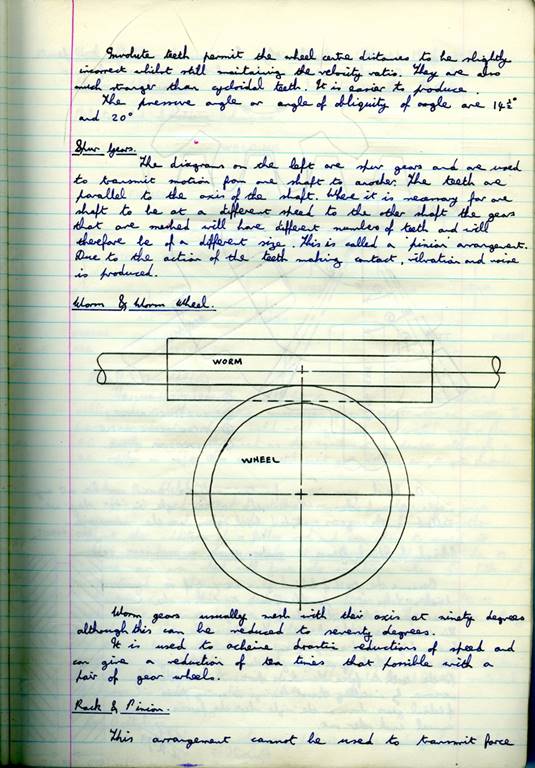 Involute teeth permit the wheel centre distances to be slightly
incorrect whilst still maintaining the velocity ratio. They are also
much stronger than cycloidal teeth. It is easier to produce.
The pressure angle or angle of obliquity of angle are 14½°
and 20°
Spur Gears.
The diagrams on the left are spur gears and are used
to transmit motion for one shaft to another. The teeth are
parallel to the axis of the shaft. Where it is necessary for one
shaft to be at a different speed to the other shaft the gears
that are meshed will have different numbers of teeth and will
therefore be of a different size. This is called a 'pinion' arrangement.
Due to the action of the teeth making contact, vibration and noise
is produced.
Worm & Worm Wheel.
WORM
WHEEL
Worm gears usually mesh with their axis at ninety degrees
although this can be reduced to seventy degrees.
It is used to acheive drastic reductions of speed and
can give a reduction of ten times that possible with a
pair of gear wheels.
Rack & Pinion.
This arrangement cannot be used to transmit force